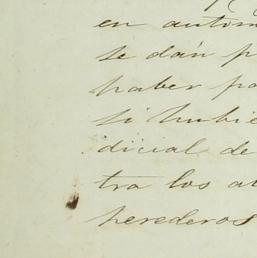 en autom
se dán p
haber pa
si hubie
idicial de
tra los a
herederos